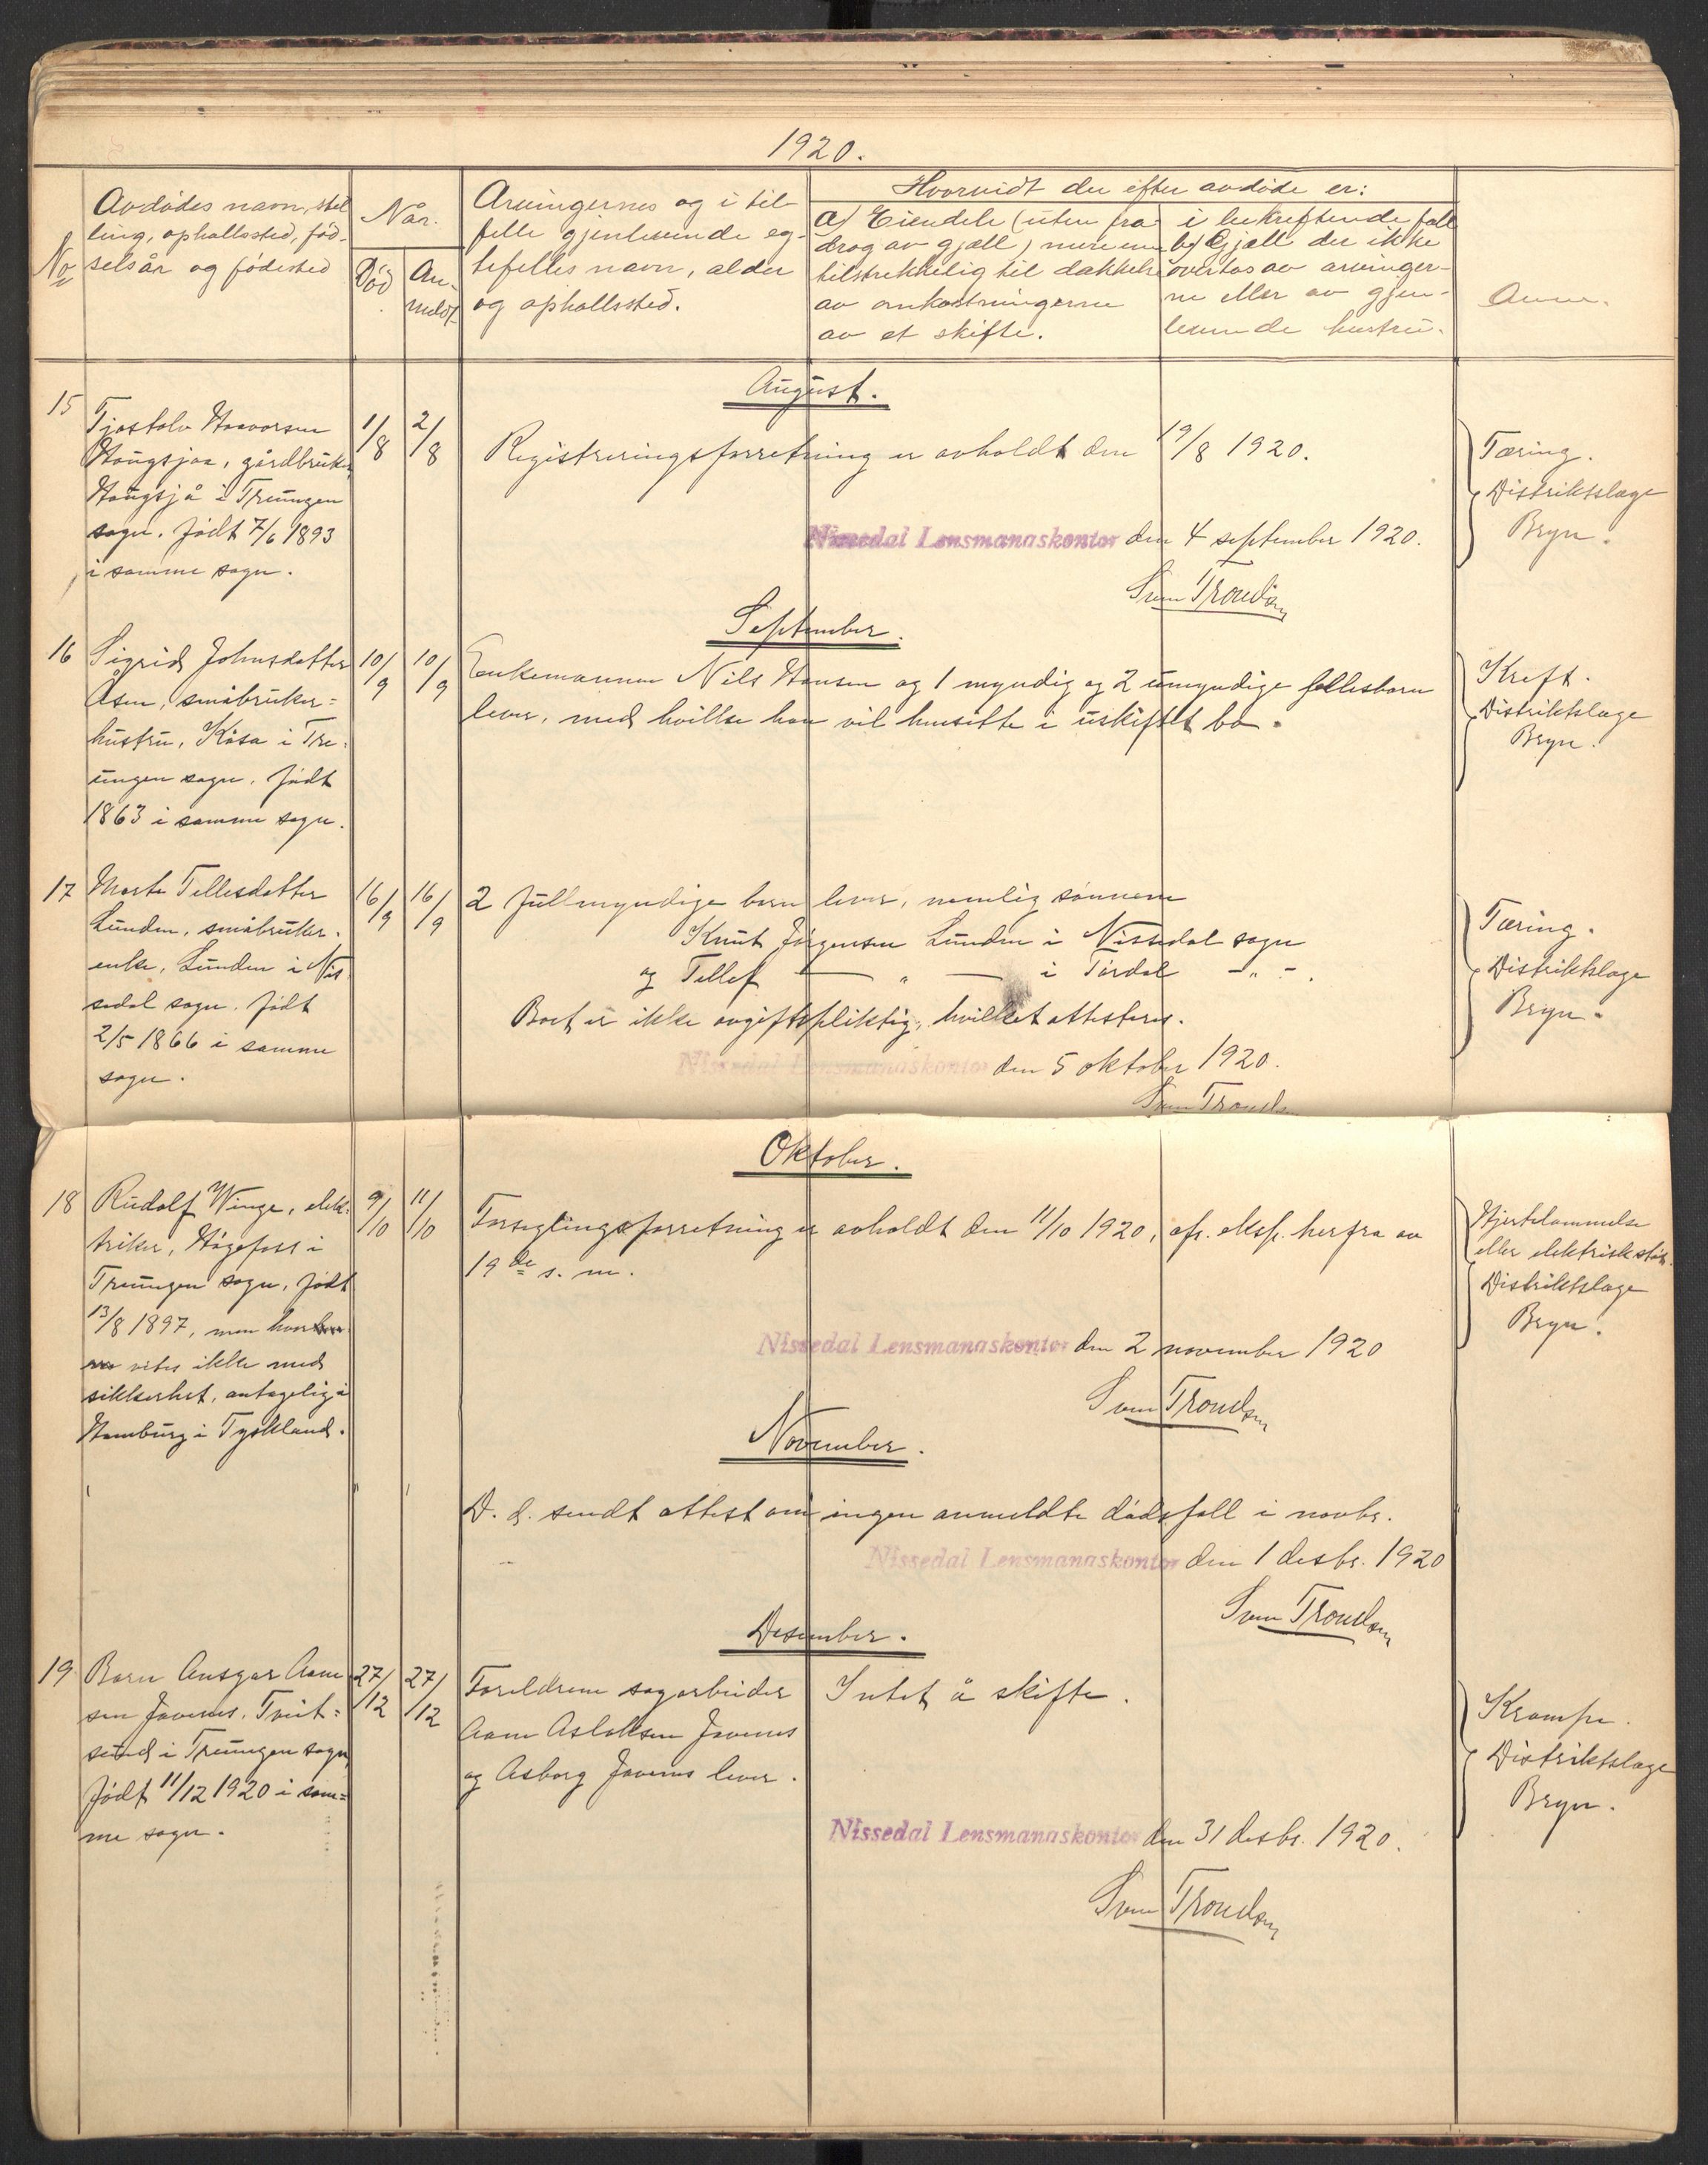 1920.
No
Avdødes navn, stil
ling, opholdssted, fød-
selsår og fødested
Når.
Død
An-
meldt
Arvingernes og i til-
felle gjenlevende eg-
tefelles navn, alder
og opholdssted.
Hvorvidt der efter avdøde er:
a) Eiendele (uten fra
drag av gjæll) mere enn
tilstrekkelig til dækkelse
av omkostningerne
av et skifte.
i bekreftende fall
b) Gjæll der ikke
overtas av arvinger-
ne eller av gjen-
levende hustru.
Anm.
August.
15
Tjostolv Havorsen
Haugsjaa, gårdbruker,
Haugsjå i Treungen
sogn. Født 7/6 1893
i samme sogn.
1/8
2/8
Registreringsforretning er avholdt den 19/8 1920.
Nissedal Lensmanaskontor den 4 september 1920.
Sven Trondsen
Tæring.
Distriktslæge
Bryn.
September.
16
Sigrid Johnsdatter
Åsen, småbruker-
hustru, Kåsa i Tre-
ungen sogn. Født
1863 i samme sogn.
10/9
10/9
Enkemannen Nils Hansen og 1 myndig og 2 umyndige fellesbarn
lever, med hvilke han vil hensitte i uskiftet bo.
Kreft.
Distriktslæge
Bryn.
17
Marte Tellefsdatter
Lunden, småbruker-
enke, Lunden i Nis
sedal sogn. Født
2/5 1866 i samme
sogn.
16/9
16/9
2 fullmyndige barn lever, nemlig sønnene
Knut Jørgensen Lunden i Nissedal sogn
og Tellef — " — i Tørdal - " -.
Boet er ikke avgiftspliktig, hvilket attesteres.
Nissedal Lensmanaskontor den 5 oktober 1920.
Sven Trondsen
Tæring.
Distriktslæge
Bryn.
Oktober.
18
Rudolf Winge, elek-
triker, Høgefoss i
Treungen sogn, født
13/8 1897, men hvor
vites ikke med
sikkerhet, antagelig i
Hamburg i Tyskland.
9/10
11/10
Forseglingsforretning er avholdt den 11/10 1920, cfr. eksp. herfra av
19de s. m.
Nissedal Lensmanaskontor den 2 november 1920
Sven Trondsen
Hjertelammelse
eller elektrisk støt.
Distriktslæge
Bryn.
November.
D. d. sendt attest om ingen anmeldte dødsfall i novbr.
Nissedal Lensmanaskontor den 1 desbr. 1920
Sven Trondsen
Desember.
19
Barn Ansgar Aane
sen Javenes, Tveit-
sund i Treungen sogn,
født 11/12 1920 i sam-
me sogn.
27/12
27/12
Foreldrene sagarbeider
Aane Aslaksen Javenes
og Asborg Javenes lever.
Intet å skifte.
Nissedal Lensmanaskontor den 31 desbr. 1920.
Sven Trondsen
Krampe.
Distriktslæge
Bryn.